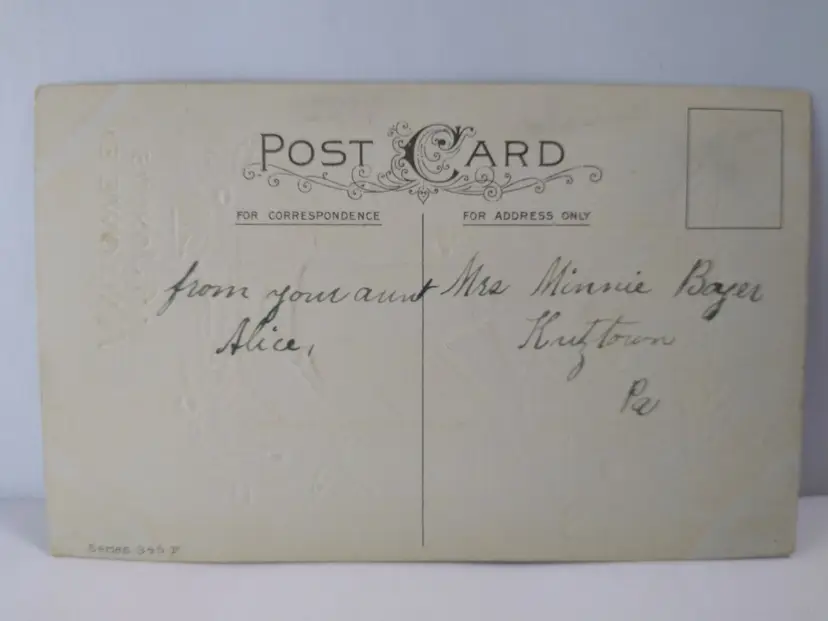 POST CARD
FOR CORRESPONDENCE
FOR ADDRESS ONLY
from your aunt
Alice,
Mrs Minnie Boyer
Kutztown
Pa
SERIES